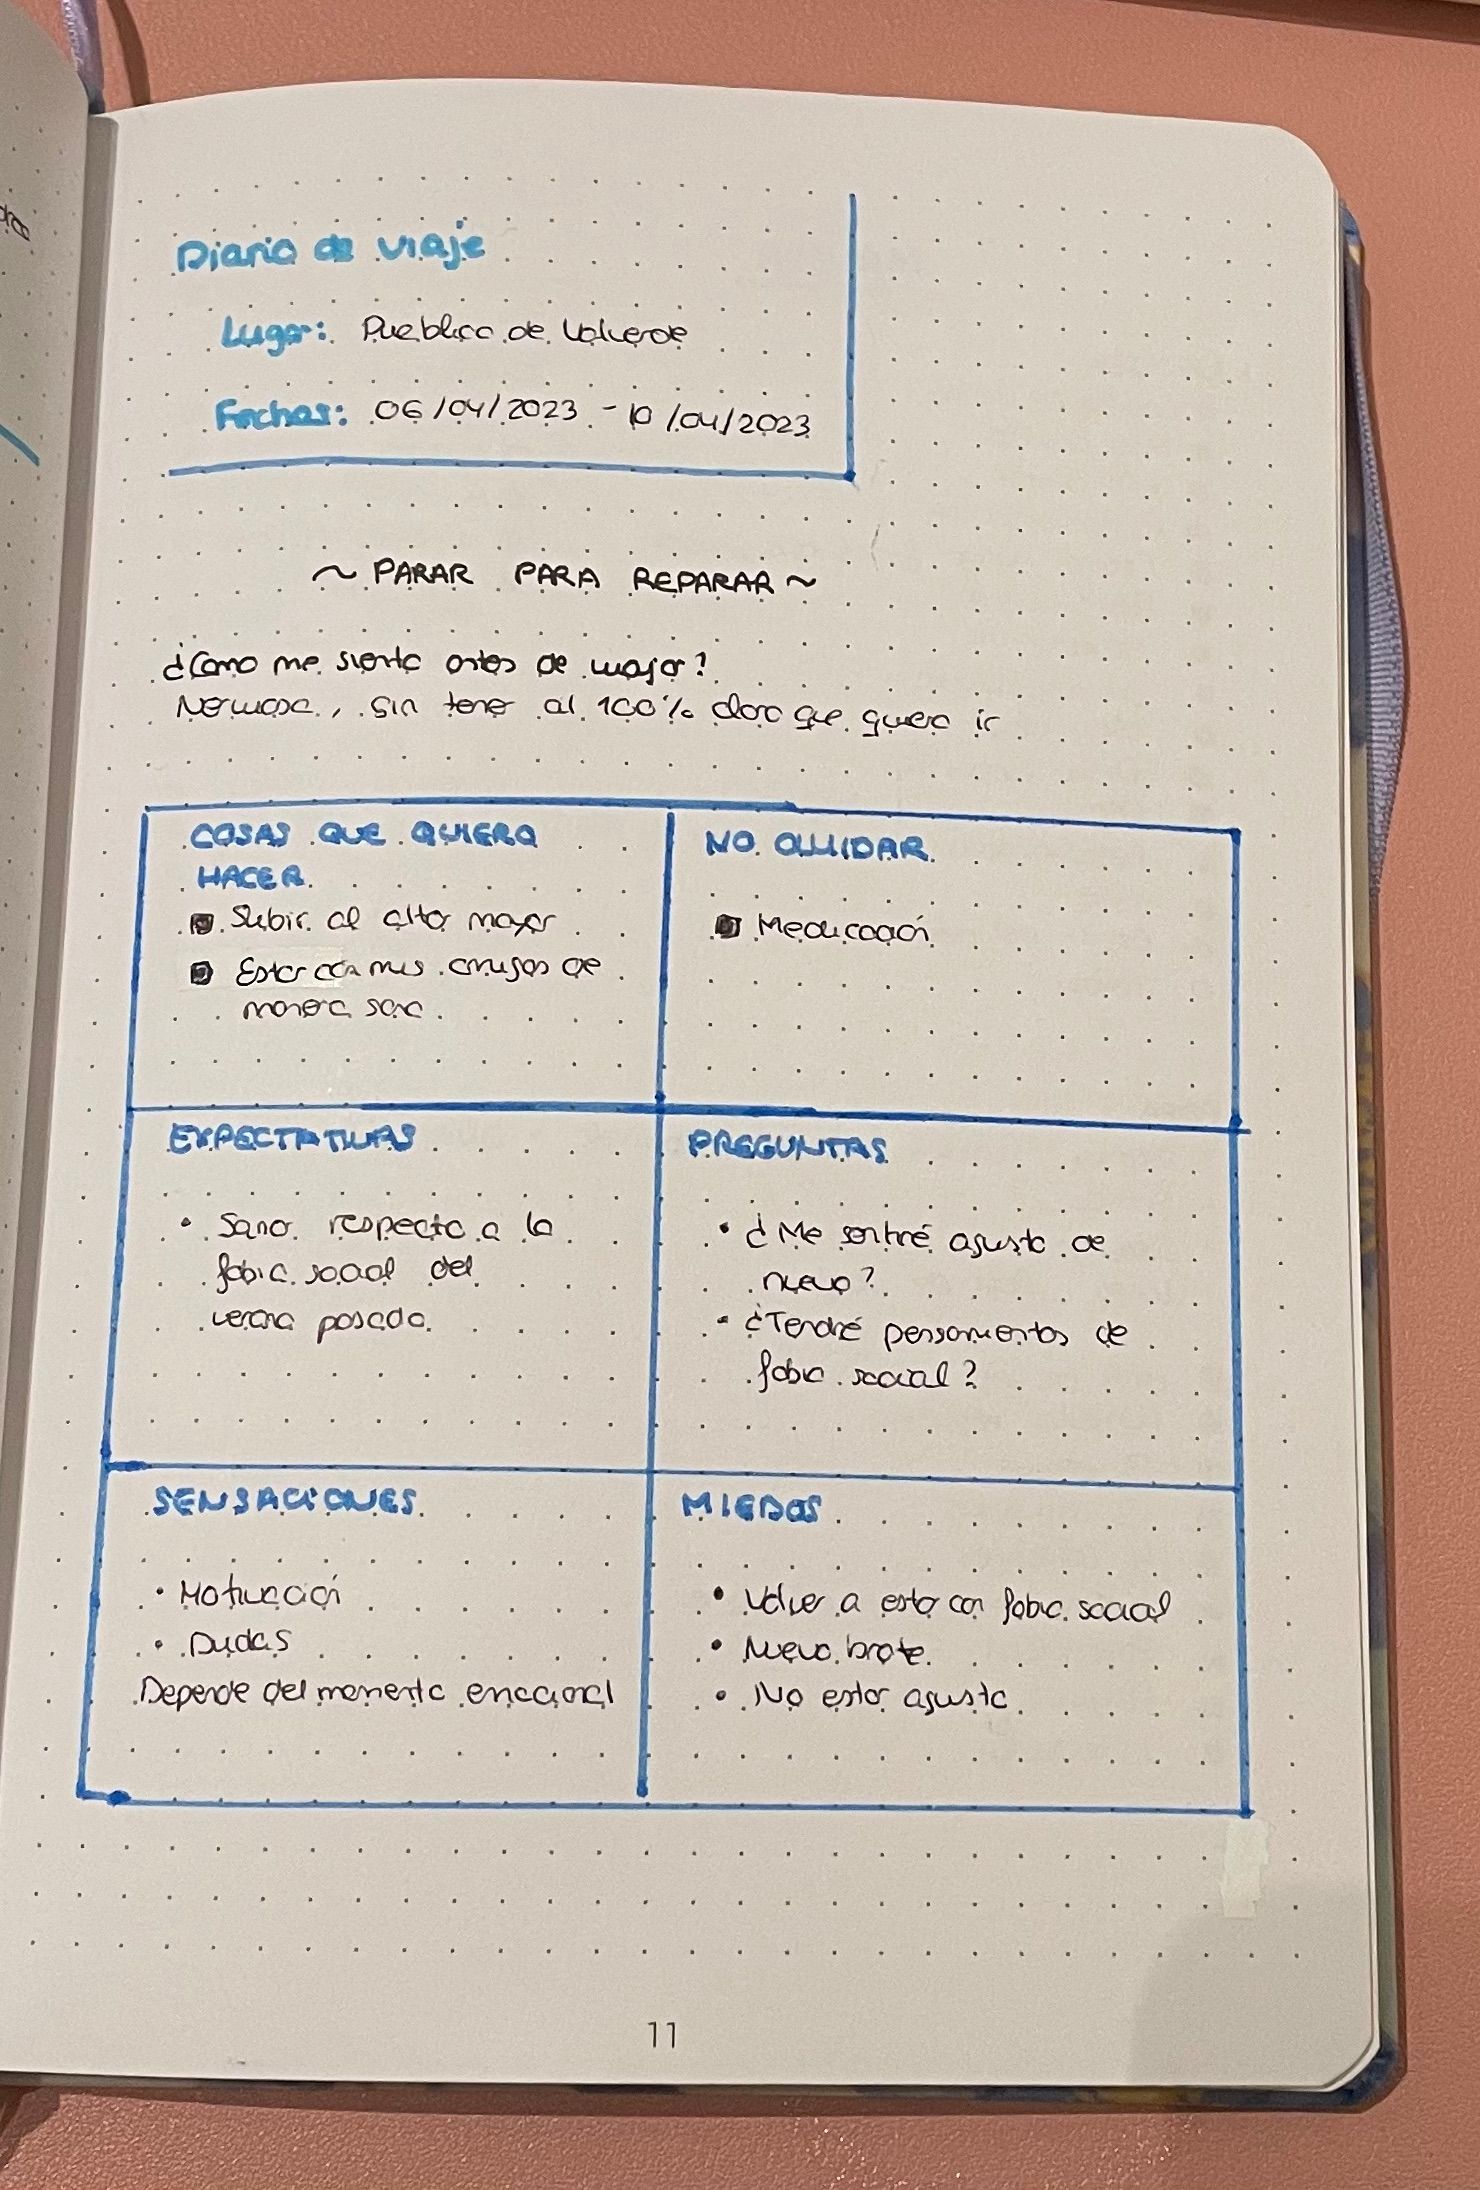 Diario de viaje
Lugar: Pueblico de Valverde
Fechas: 06/04/2023 - 10/04/2023
~ PARAR PARA REPARAR ~
¿Como me siento antes de viajar?
Nerviosa, sin tener al 100% claro que quiero ir
COSAS QUE QUIERO
HACER
Subir al alto mayor
Estar con mis amigos de
manera sana.
NO OLVIDAR
Medicación
EXPECTATIVAS
• Sanar respecto a la
fobia social del
verano pasado.
PREGUNTAS
• ¿Me sentiré agusto de
nuevo?
• ¿Tendré pensamientos de
fobia social?
SENSACIONES
• Motivación
• Dudas
Depende del momento emocional
MIEDOS
• Volver a estar con fobia social
• Nuevo brote.
• No estar agusto.
11